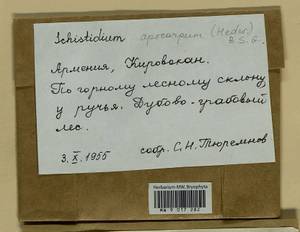 Schistidium apocarpum (Hedw.)
B. S. G.
Армения, Кировакан.
По горному лесному склону
у ручья. Дубово-грабовый
лес.
3.X.1955
собр. С. Н. Тюремнов
Herbarium MW, Bryophyta
MW 9 017 282